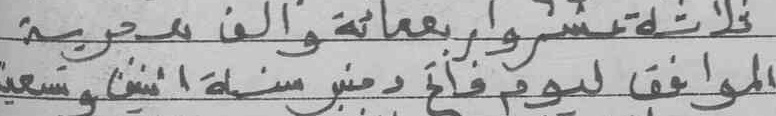 ثلاثة عشر وأربعمائة وألف هجرية
الموافق ليوم فاتح دجنبر سنة اثنين وتسعين